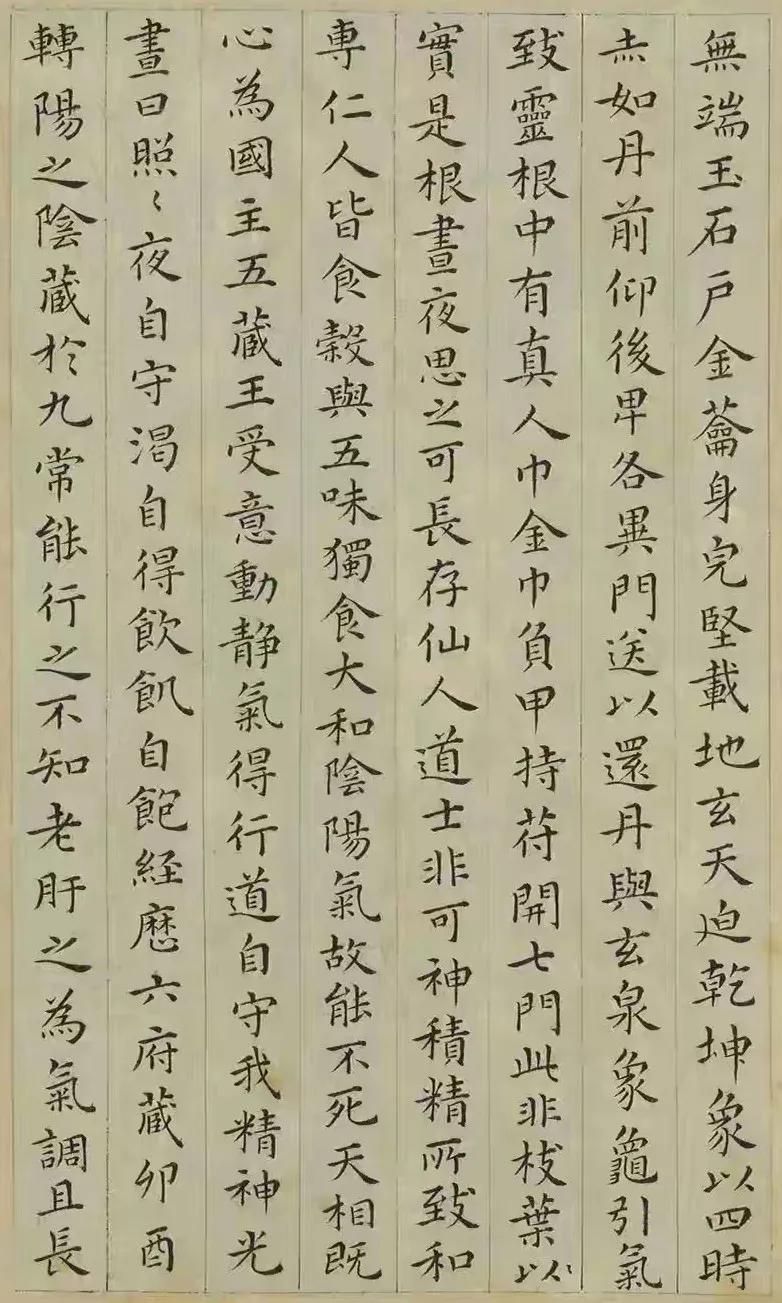 無端玉石戶金蘥身完堅載地玄天迫乾坤象以四時
赤如丹前仰後卑各異門送以還丹與玄泉象龜引氣
致靈根中有真人巾金巾負甲持苻開七門此非枝葉以
實是根晝夜思之可長存仙人道士非可神積精所致和
專仁人皆食穀與五味獨食大和陰陽氣故能不死天相既
心為國主五藏王受意動静氣得行道自守我精神光
晝日照〻夜自守渴自得飲飢自飽経歷六府藏卯酉
轉陽之陰藏於九常能行之不知老肝之為氣調且長